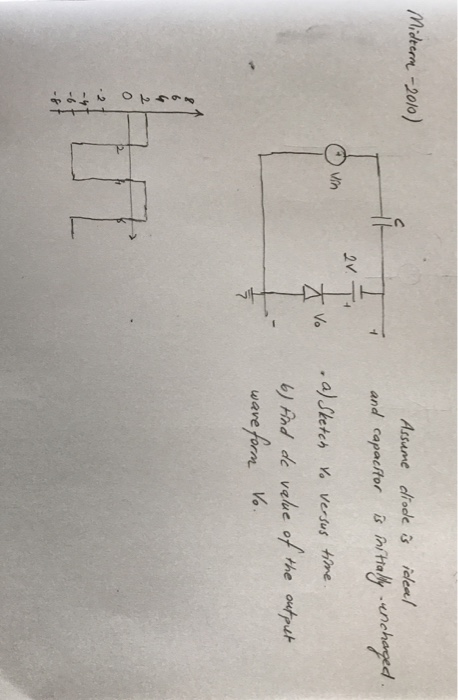 Midterm - 2010)
Assume diode is ideal
and capacitor is initially uncharged.
C
2V
+
+
Vin
+
Vo
-
a) Sketch Vo versus time
b) Find dc value of the output
waveform Vo.
8
6
4
2
0
-2
-4
-6
-8
2
4